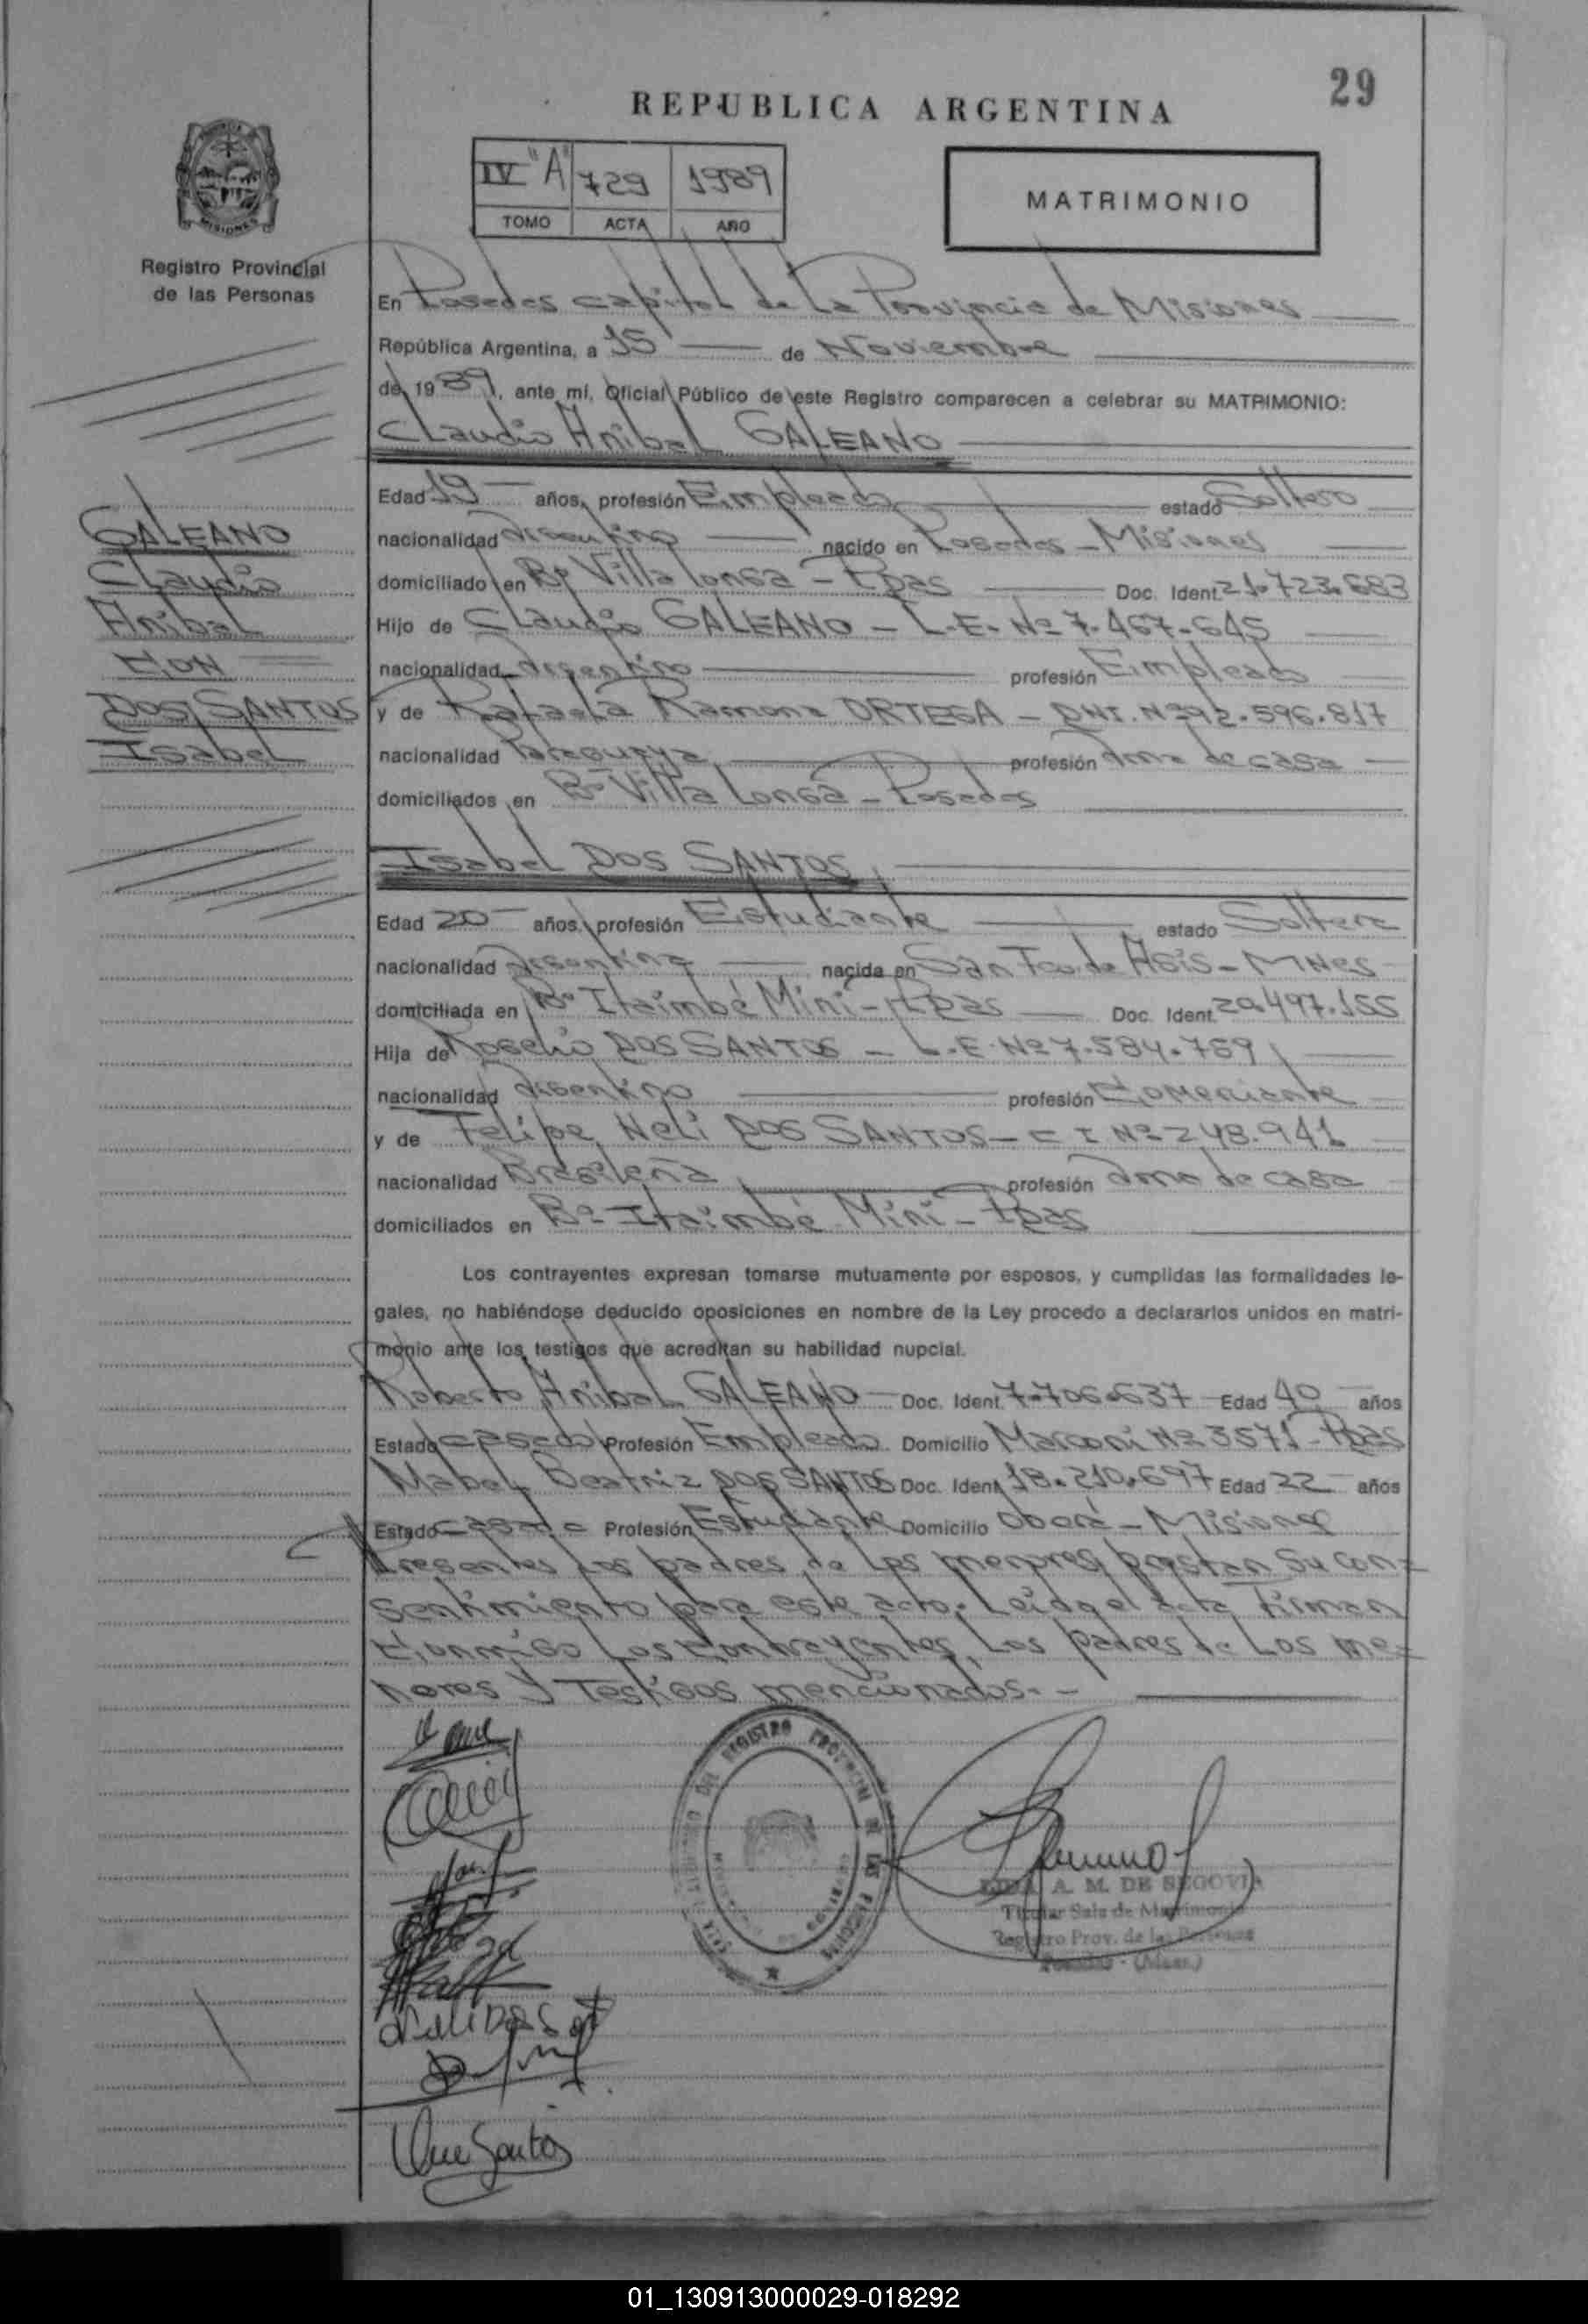 29
REPUBLICA ARGENTINA
IV "A" 729 1989
TOMO ACTA AÑO
MATRIMONIO
MISIONES
Registro Provincial
de las Personas
En Posadas capital de La Provincia de Misiones
República Argentina, a 15 de Noviembre
de 1989, ante mí, Oficial Público de este Registro comparecen a celebrar su MATRIMONIO:
Claudio Anibal GALEANO
GALEANO
Claudio
Anibal
CON
DOS SANTOS
Isabel
Edad 19 años, profesión Empleado estado Soltero
nacionalidad Argentino nacido en Posadas - Misiones
domiciliado en Bº Villa Longa - Pdas Doc. Ident. 21.723.683
Hijo de Claudio GALEANO - L.E. Nº 7.467.645
nacionalidad Argentino profesión Empleado
y de Rafaela Ramona ORTEGA - DNI. Nº 92.596.817
nacionalidad Paraguaya profesión Ama de casa
domiciliados en Bº Villa Longa - Posadas
Isabel DOS SANTOS
Edad 20 años, profesión Estudiante estado Soltera
nacionalidad Argentina nacida en San Fco. de Asis - MNes
domiciliada en Bº Itaimbé Mini - Pdas Doc. Ident. 20.497.155
Hija de Rogelio DOS SANTOS - L.E. Nº 7.584.759
nacionalidad Argentino profesión Comerciante
y de Felipe Neli DOS SANTOS - C I Nº 248.941
nacionalidad Brasileña profesión Ama de casa
domiciliados en Bº Itaimbé Mini - Pdas
Los contrayentes expresan tomarse mutuamente por esposos, y cumplidas las formalidades le-
gales, no habiéndose deducido oposiciones en nombre de la Ley procedo a declararlos unidos en matri-
monio ante los testigos que acreditan su habilidad nupcial.
Roberto Anibal GALEANO Doc. Ident. 7.706.637 Edad 40 años
Estado casado Profesión Empleado Domicilio Marconi Nº 3571 - Pdas
Mabel Beatriz DOS SANTOS Doc. Ident. 18.210.697 Edad 22 años
Estado casada Profesión Estudiante Domicilio Oberá - Misiones
Presentes los padres de los menores prestan su con-
sentimiento para este acto. Leida el acta Firman
Conmigo Los Contrayentes, Los padres de Los me-
nores y Testigos mencionados. -
DEL REGISTRO PROVINCIAL DE LAS PERSONAS
A. M. DE SEGOVIA
Titular Sala de Matrimonio
Registro Prov. de las Personas
Posadas - (Mnes.)
01_130913000029-018292